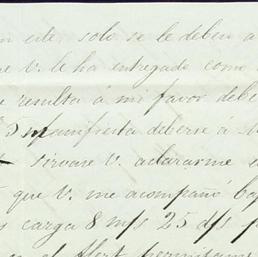 n este solo se le deben a
ue V. le ha entregado como
e resulta á mi favor debe
manifiesta deberse á
sirvase V. aclararme
que V. me acompañó baj
carga 8 m/s 25 d/s p
en el